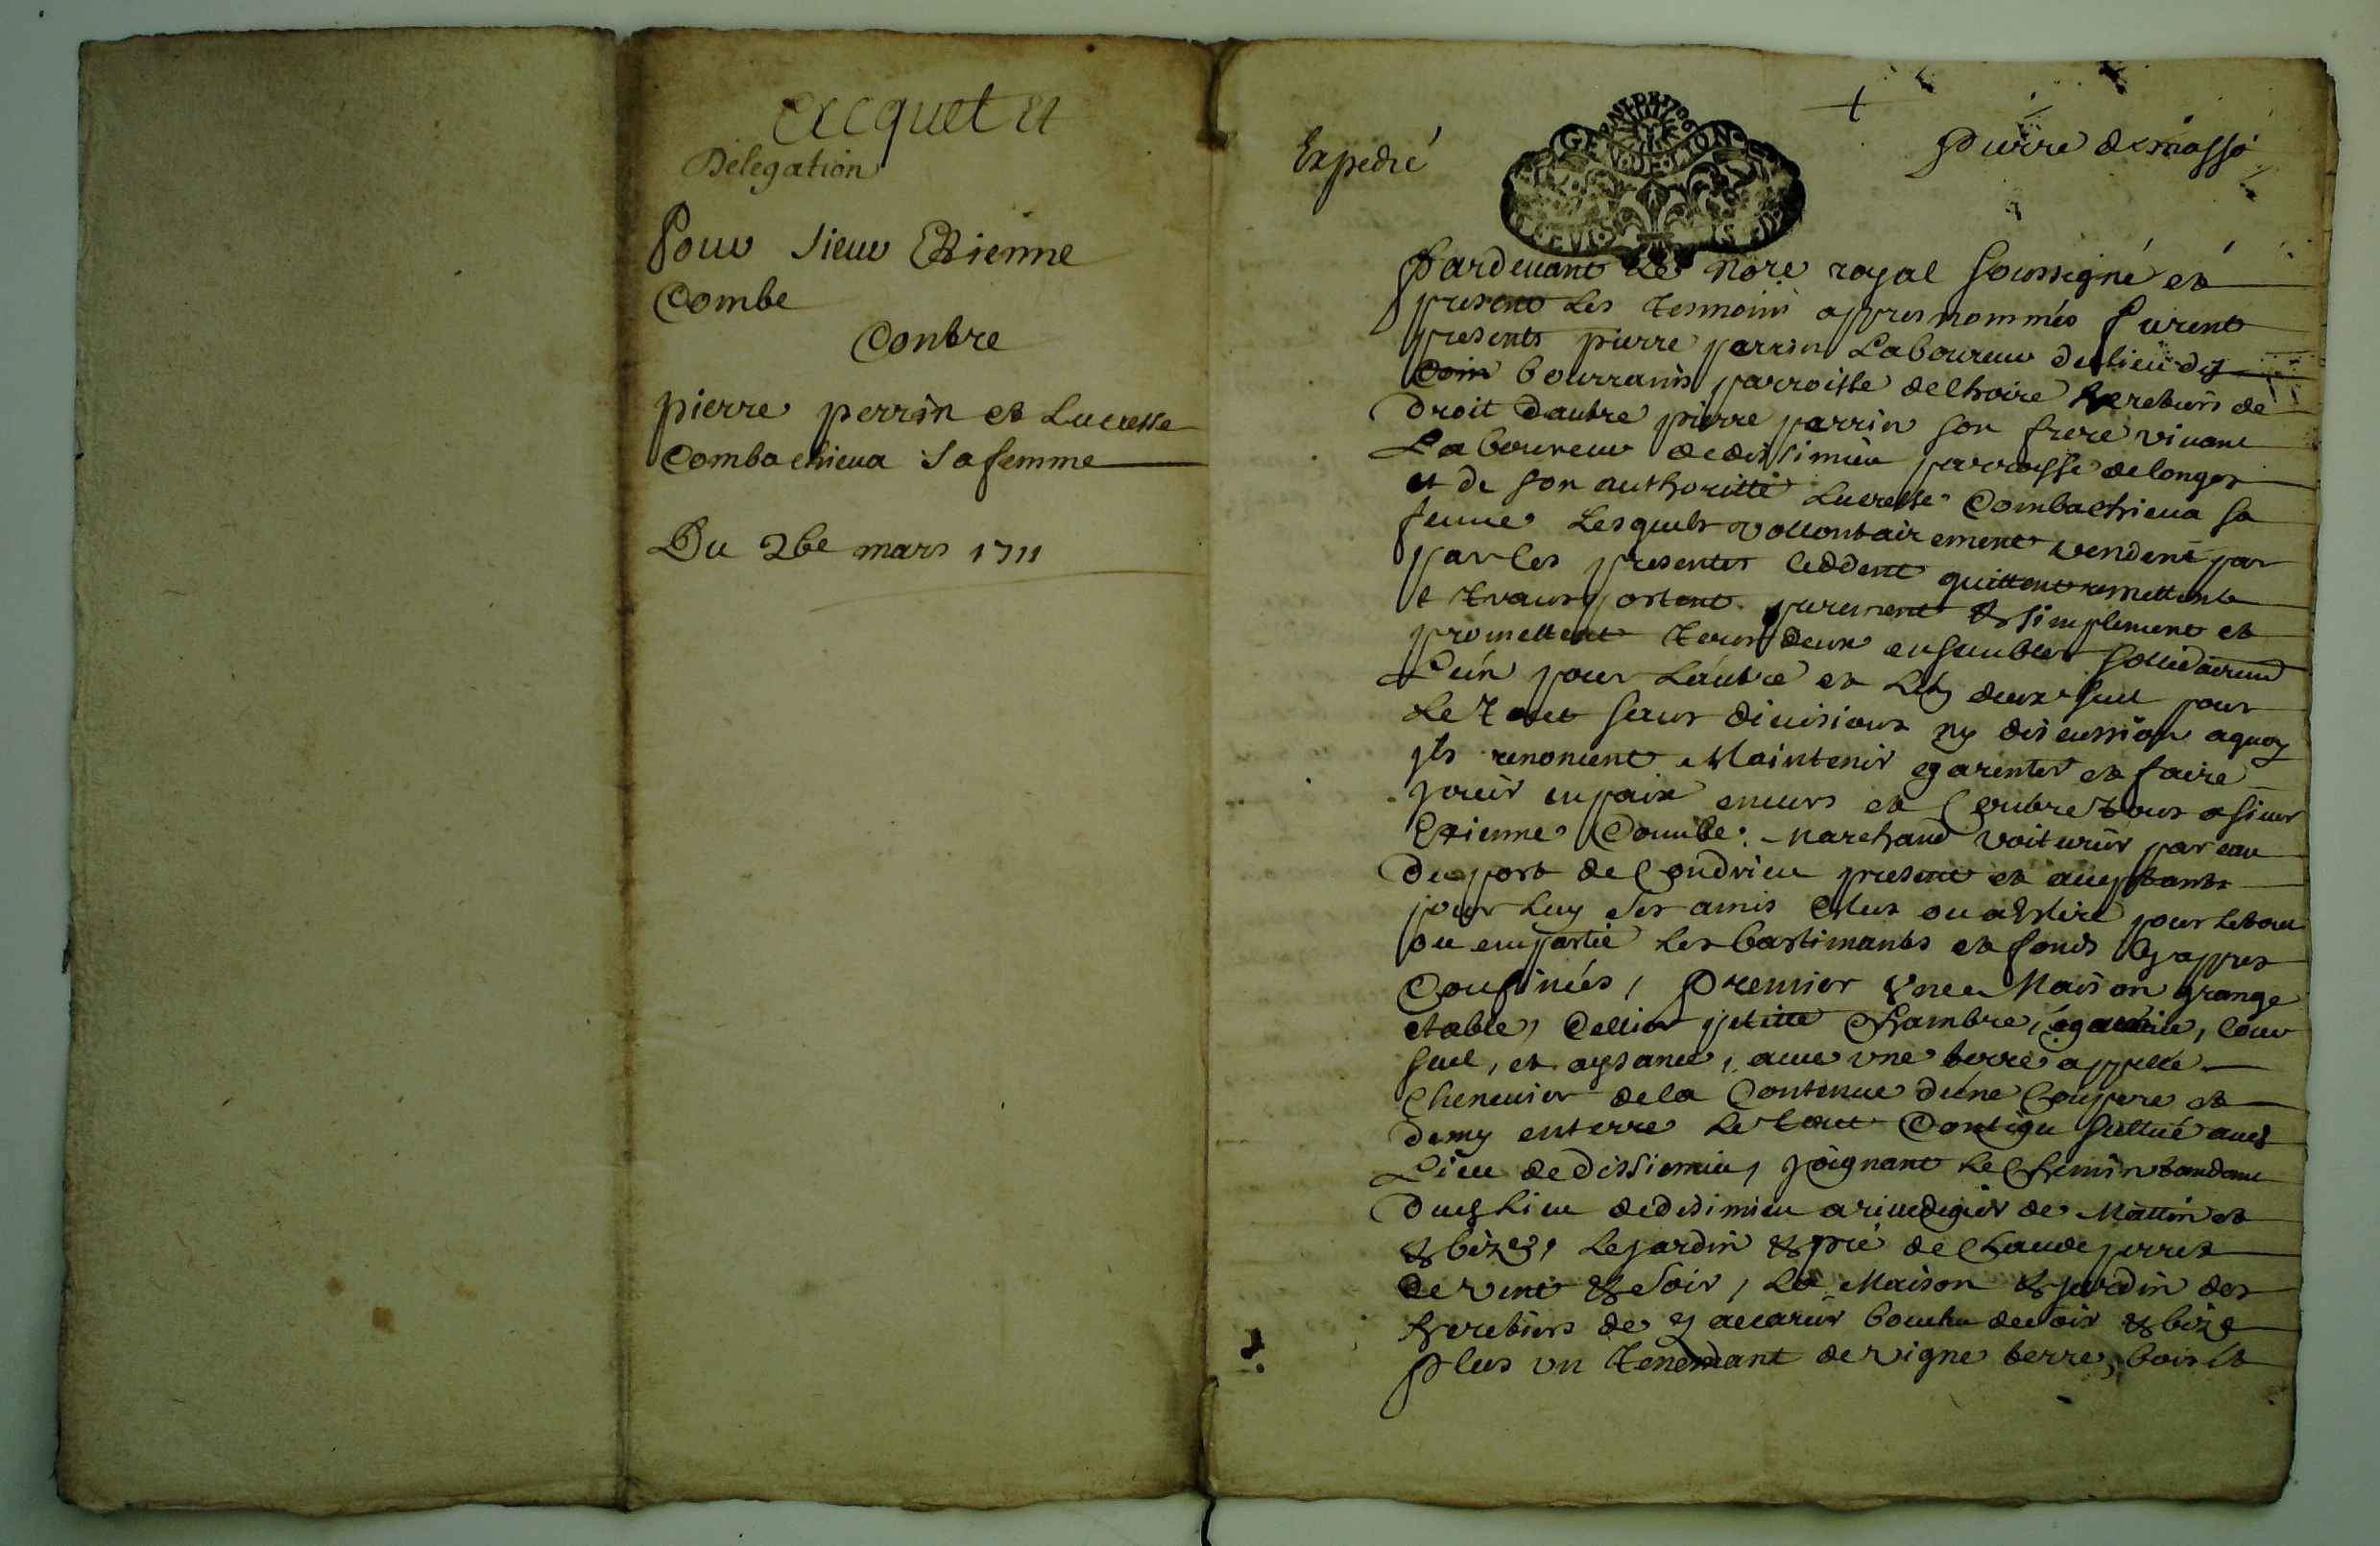 Acquet et
Delegation
Pour sieur Estienne
Combe
Contre
pierre perrin et Lucresse
Combachieua sa femme
Du 26e mars 1711
Expedié
GEN DE LION
pierre de masso
Pardeuant Le nore royal soussigné et
present Les tesmoins appres nommés furent
presents pierre perrin Laboureur du lieu de
bourranis parroisse delhoire heretiers de
droit dautre pierre perrin son frere viuant
Laboureur dedissimieu parroisse delonges
et de son authoritté Lucresse Combachieua sa
femme Lesquels vollontairement vendent par
par les presentes ceddent quittent remettent
e transportent purement & simplement et
promettent tous deux ensembles sollidairemt
L'un pour L'autre et L'un deux seul pour
Le tout sans diuisions ny discussion aquoy
jls renoncent Maintenir garentir et faire
jouir enpaix enuers et Contre tous a sieur
Estienne Combe marchand voiturier par eau
du port de Condrieu present et acceptant
pour Luy ses amis Eslus ou a Eslire pour letout
ou en partie Les bastimants et fonds cy appres
Confinés, Premier vne Maison grange
etable, Cellier petitte Chambre, cour
suel, et aysance, auec vne terre appellé
Cheneuier dela Contenue d'une Couppee et
demy enterre Le tout Contigu scittué audt
Lieu dedissimieu, joignant Le Chemin tandant
dudt Lieu dedisimieu a riuedegier de Mattin et
& bize, Le jardin & pré de Claude perret
de vent & soir, La Maison & jardin des
heretiers de bouchu de soir & bize
Plus vn tenemant de vigne terre, bois et